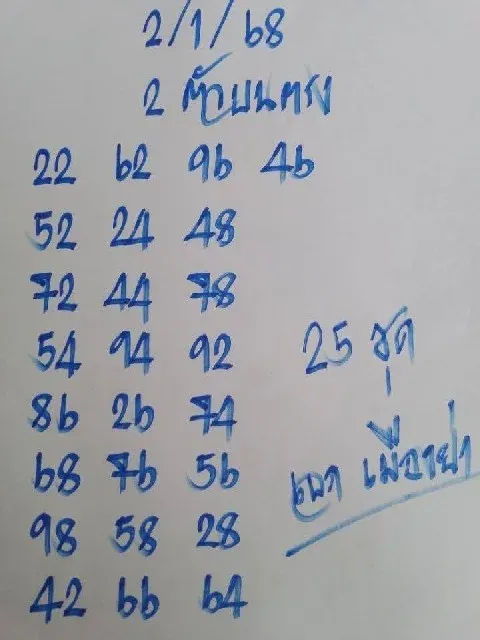 2/1/68
2 ตัวบนตรง
22 62 96 46
52 24 48
72 44 78
54 94 92
25 ชุด
86 26 74
68 76 56
98 58 28
42 66 64